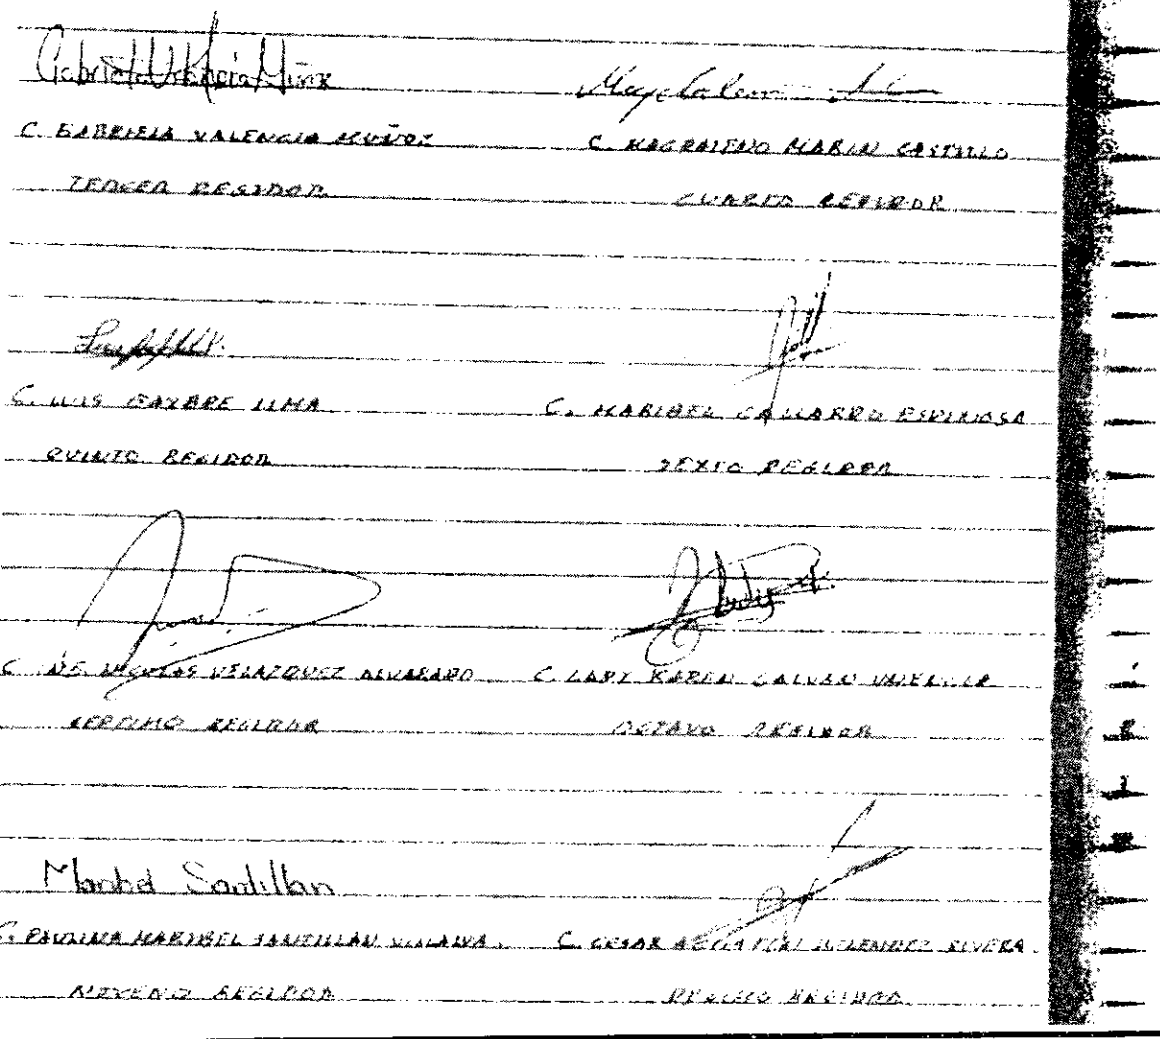 Gabriela Valencia Muñoz
C. GABRIELA VALENCIA MUÑOZ
TERCER REGIDOR
Magdaleno
C. MAGDALENO MARIN CASTILLO
CUARTO REGIDOR
C. LUIS LIMA
QUINTO REGIDOR
C. MARIBEL GALLARDO ESPINOSA
SEXTO REGIDOR
C. NICOLAS VELAZQUEZ ALVARADO
SEPTIMO REGIDOR
Lady
C. LADY KAREN GALVAN
OCTAVO REGIDOR
Maribel Santillan
C. PAULINA MARIBEL SANTILLAN VILLALVA
NOVENO REGIDOR
C. CESAR MELENDEZ RIVERA
DECIMO REGIDOR